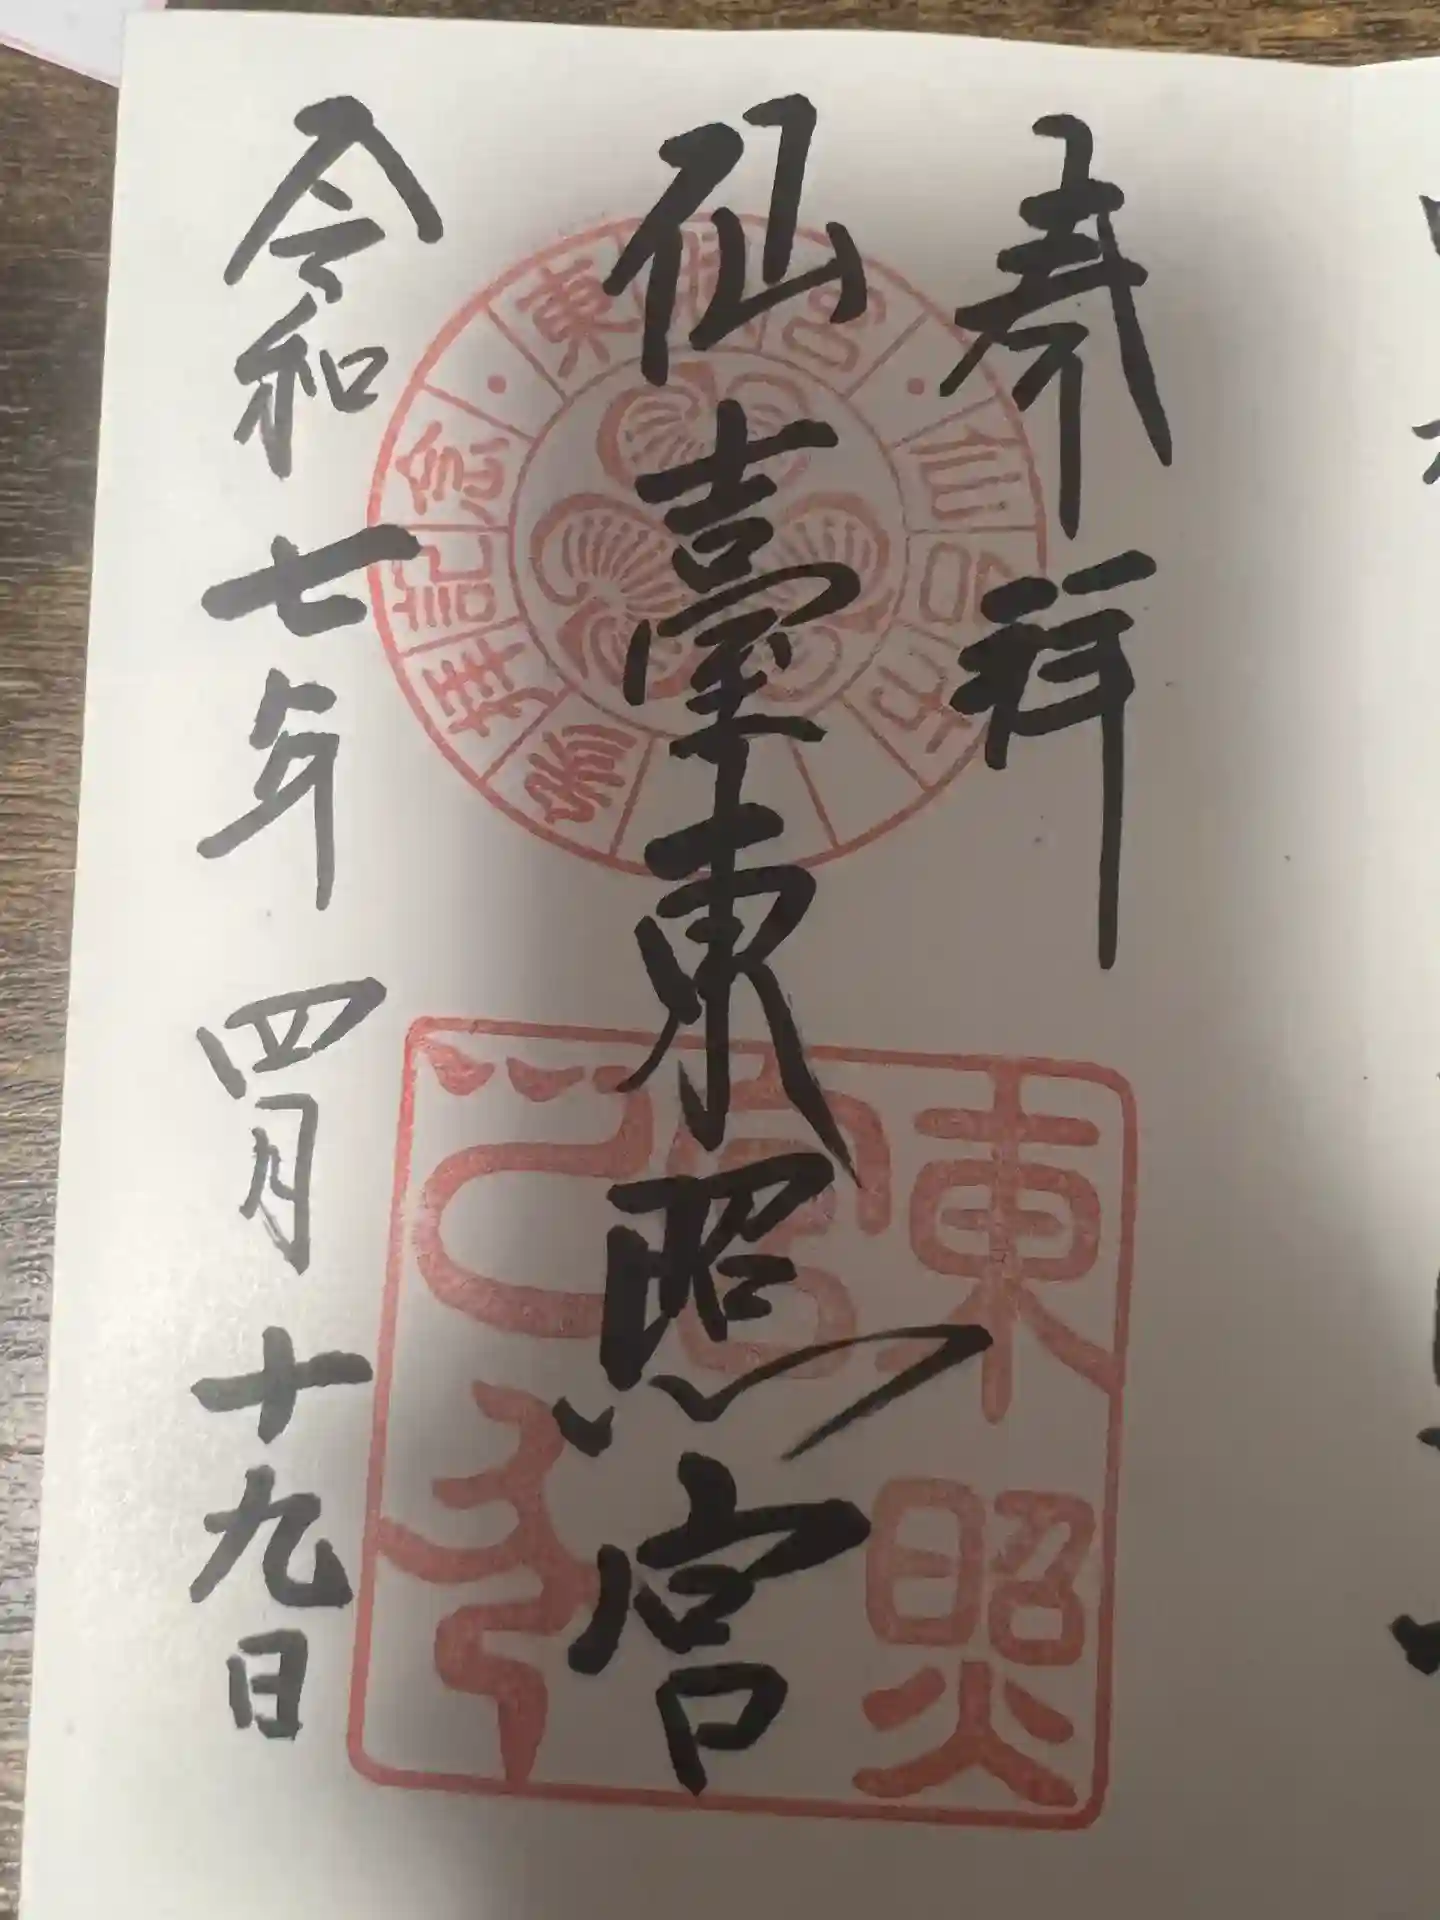 奉拝
仙臺東照宮
令和七年四月十九日
東照宮
仙台市
参拝記念
東照宮